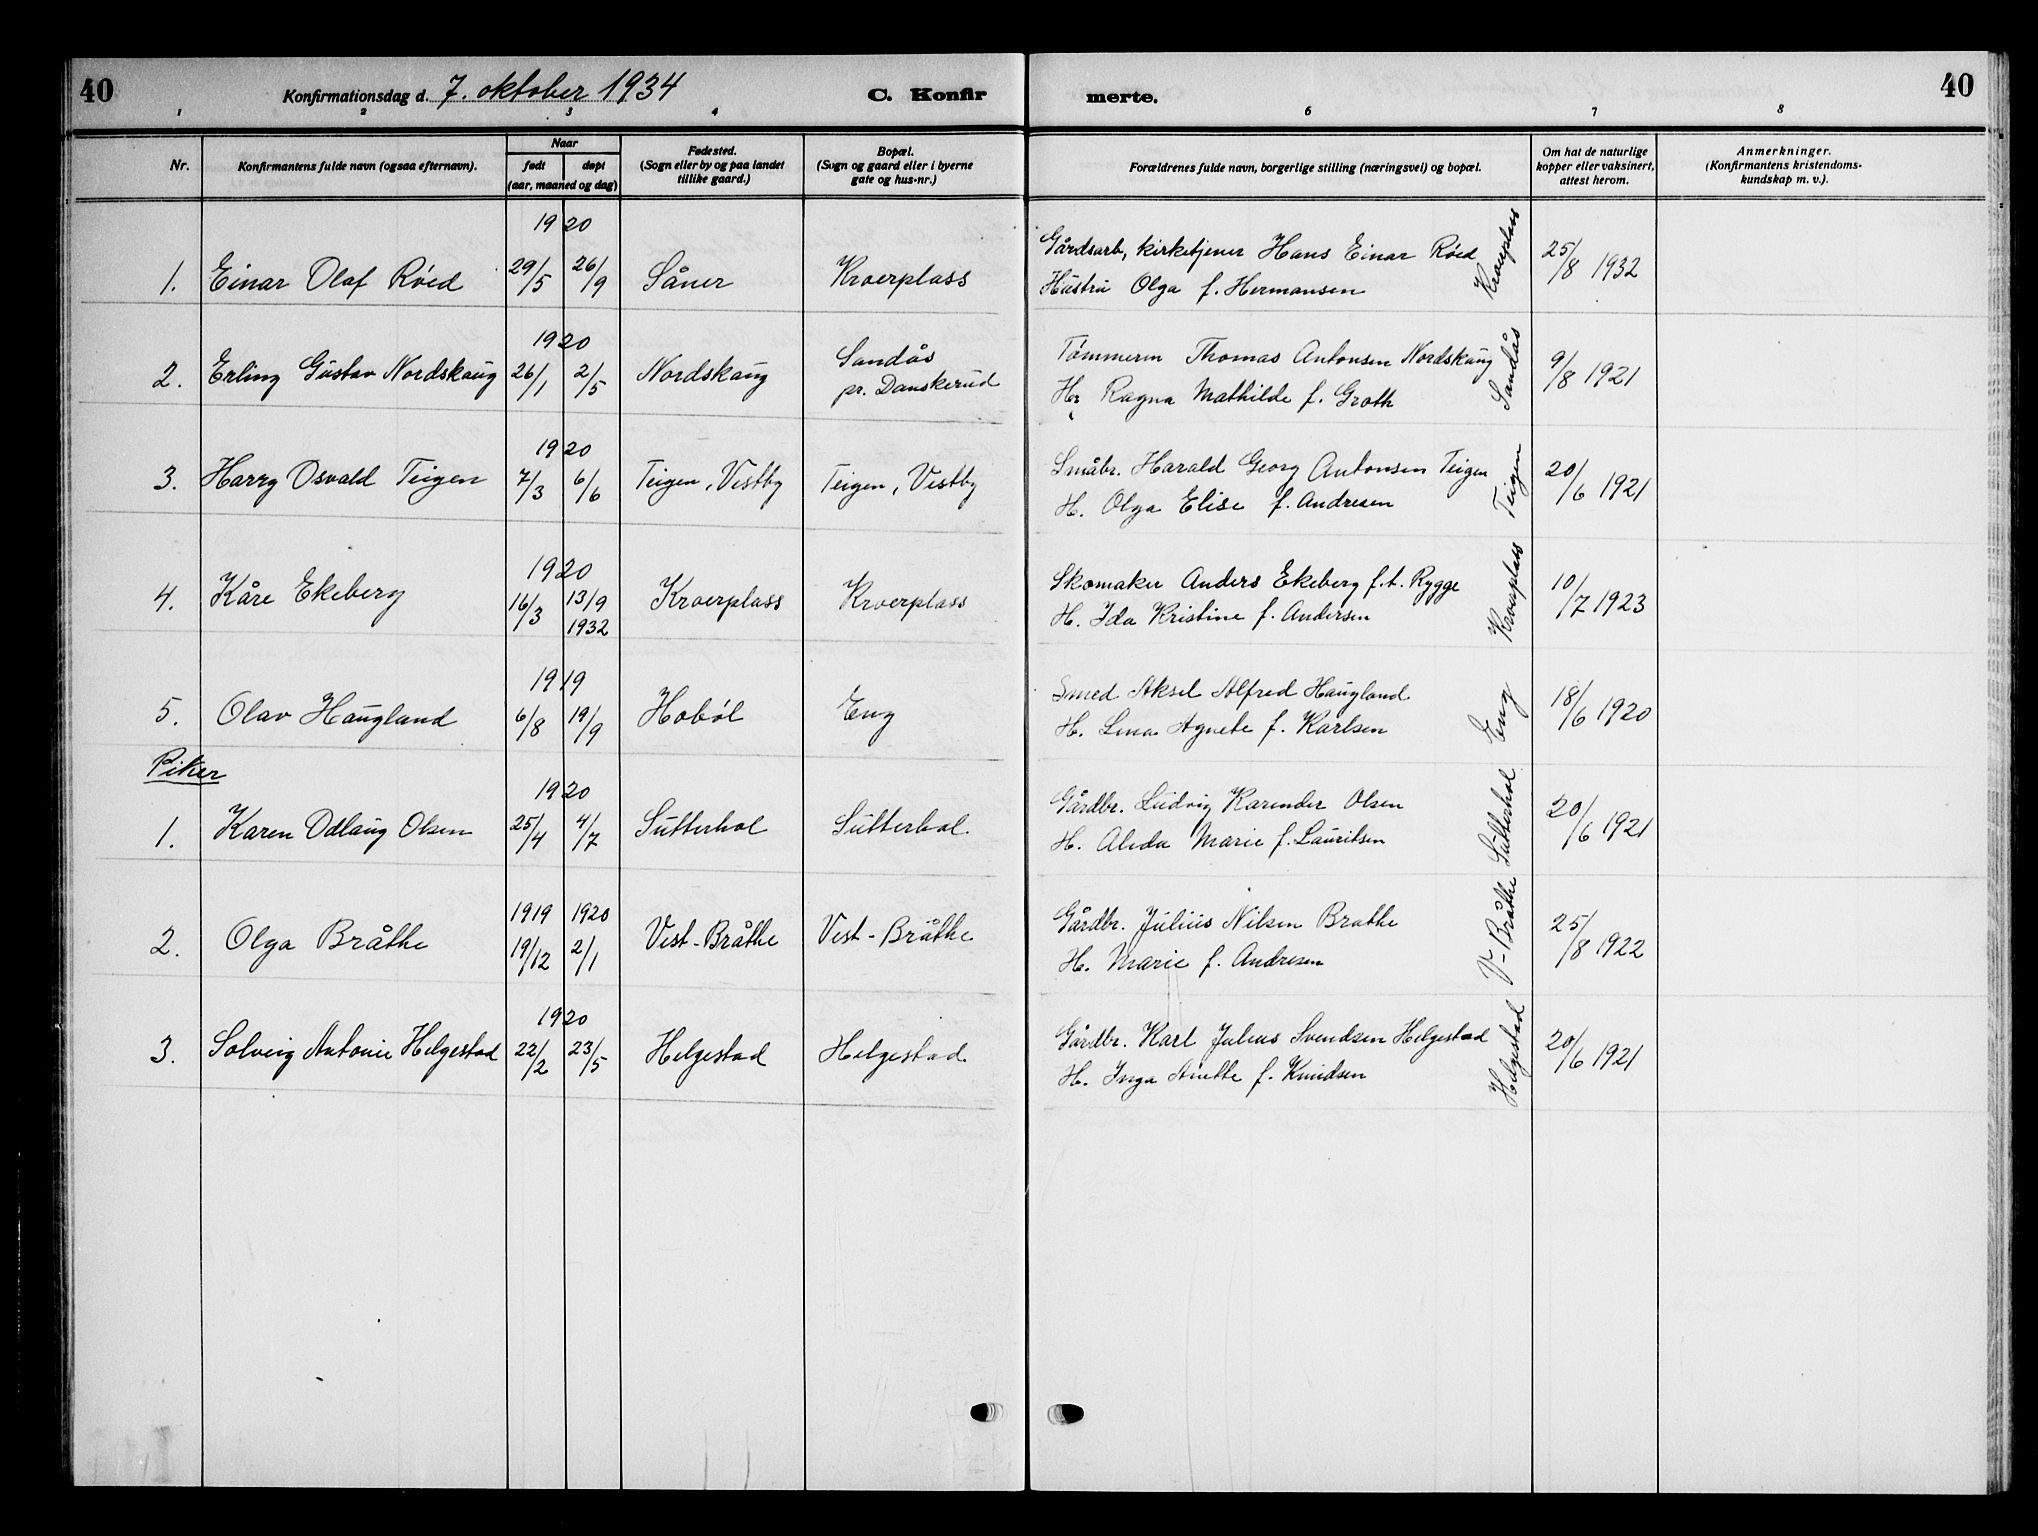 40 Konfirmationsdag d. 7. oktober 1934 C. Konfir merte. 40
1 2 3 4 6 7 8
Nr. Konfirmantens fulde navn (ogsaa efternavn). Naar født døpt (aar, maaned og dag) Fødested. (Sogn eller by og paa landet tillike gaard.) Bopæl. (Sogn og gaard eller i byerne gate og hus-nr.) Forældrenes fulde navn, borgerlige stilling (næringsvei) og bopæl. Om hat de naturlige kopper eller vaksinert, attest herom. Anmerkninger. (Konfirmantens kristendoms-kundskap m. v.).
1920
1. Einar Olaf Röed 29/5 26/9 Såner Kroerplass Gårdsarb, kirketjener Hans Einar Röed Kroerplass 25/8 1932
Hustru Olga f. Hermansen
1920
2. Erling Gustav Nordskaug 26/1 2/5 Nordskaug Sandås pr. Danskerud Tömmerm Thomas Antonsen Nordskaug Sandås 9/8 1921
H. Ragna Mathilde f. Groth
1920
3. Harry Osvald Teigen 7/3 6/6 Teigen, Vestby Teigen, Vestby Småbr. Harald Georg Antonsen Teigen Teigen 20/6 1921
H. Olga Elise f. Andresen
1920
4. Kåre Ekeberg 16/3 13/9 1932 Kroerplass Kroerplass Skomaker Anders Ekeberg f.t. Rygge Kroerplass 10/7 1923
H. Ida Kristine f. Andersen
1919
5. Olav Haugland 6/8 19/9 Hoböl Eng Smed Aksel Alfred Haugland Eng 18/6 1920
H. Lina Agnete f. Karlsen
Piker
1920
1. Karen Odlaug Olsen 25/4 4/7 Sutterhol Sutterhol. Gårdbr. Ludvig Karender Olsen Sutterhol 20/6 1921
H. Alida Marie f. Lauritsen
1919 1920
2. Olga Bråthe 19/12 2/1 Vest-Bråthe Vest-Bråthe Gårdbr. Julius Nilsen Brathe V-Bråthe 25/8 1922
H. Marie f. Andresen
1920
3. Solveig Antonie Helgestad 22/2 23/5 Helgestad Helgestad Gårdbr. Karl Julius Svendsen Helgestad Helgestad 20/6 1921
H. Inga Anette f. Knudsen